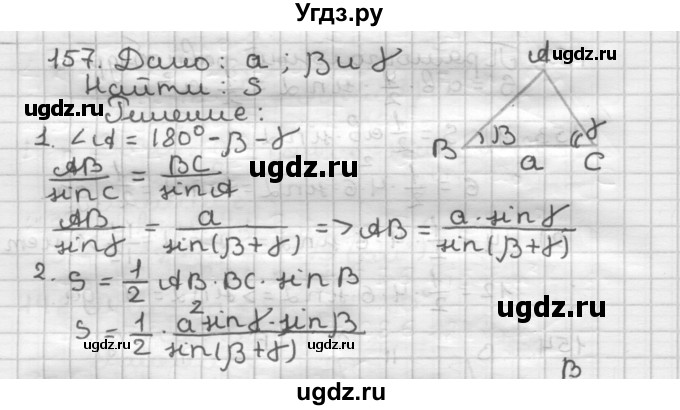 Угдз.ру
157. Дано: a; β и γ
Найти: S
Решение:
1. ∠A = 180° - β - γ
AB/sin C = BC/sin A
AB/sin γ = a/sin(β+γ) => AB = a·sin γ/sin(β+γ)
2. S = 1/2 AB·BC·sin B
S = 1/2 · a² sin γ · sin β/sin(β+γ)
A
B
β
γ
a
C
B
ugdz.ru
ugdz.ru
ugdz.ru
ugdz.ru
ugdz.ru
ugdz.ru
ugdz.ru
ugdz.ru
ugdz.ru